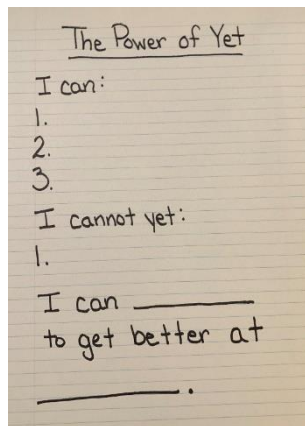 The Power of Yet
I can:
1.
2.
3.
I cannot yet:
1.
I can ________
to get better at
________.